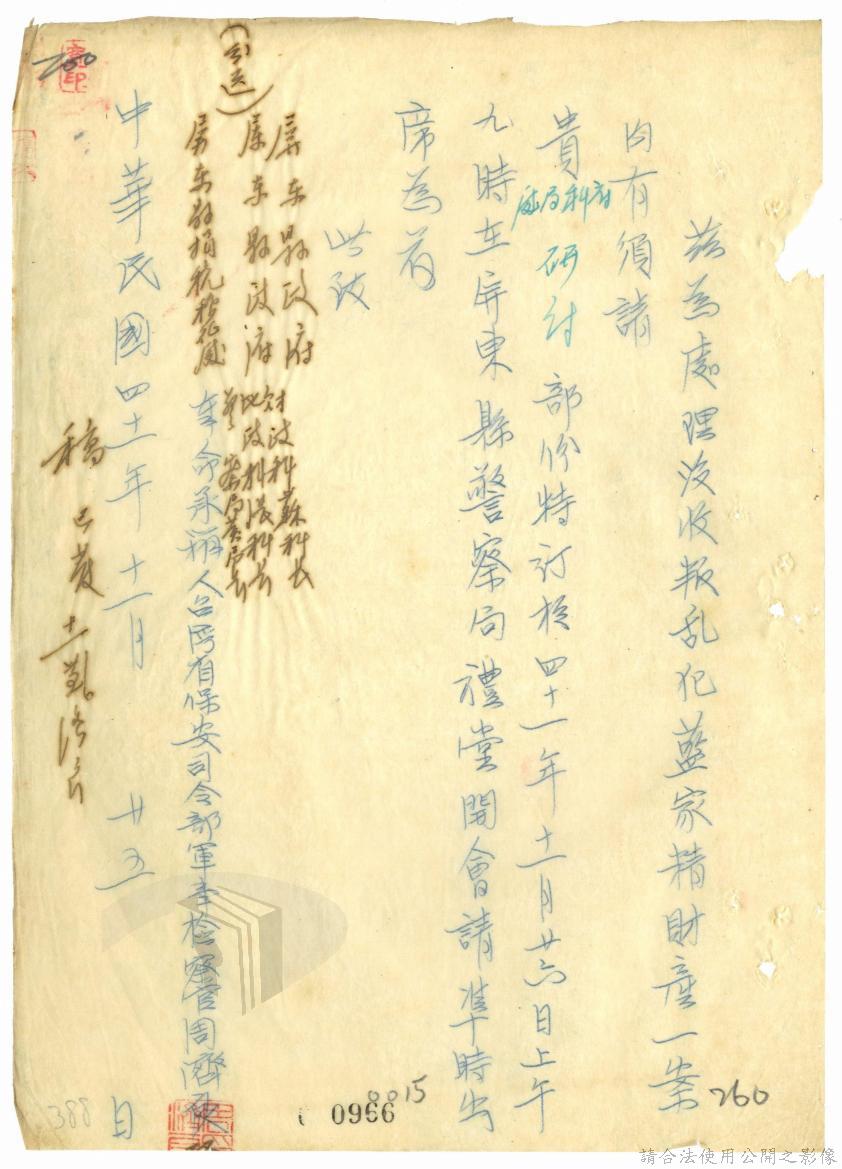 茲為處理沒收叛乱犯藍家精財產一案
內有須請
貴
府科局處
研討部份特訂於四十一年十一月廿六日上午
九時在屏東縣警察局禮堂開會請準時出
席為荷
此致
(分送)
屏东縣政府財政科蘇科長
屏东縣政府地政科張科長
警察局黃局長
屏东縣捐稅稽征處
奉命承辦人台灣省保安司令部軍事檢察官周濟
中華民國四十一年十一月廿五日
稿已發
260
15
0966
388
請合法使用公開之影像